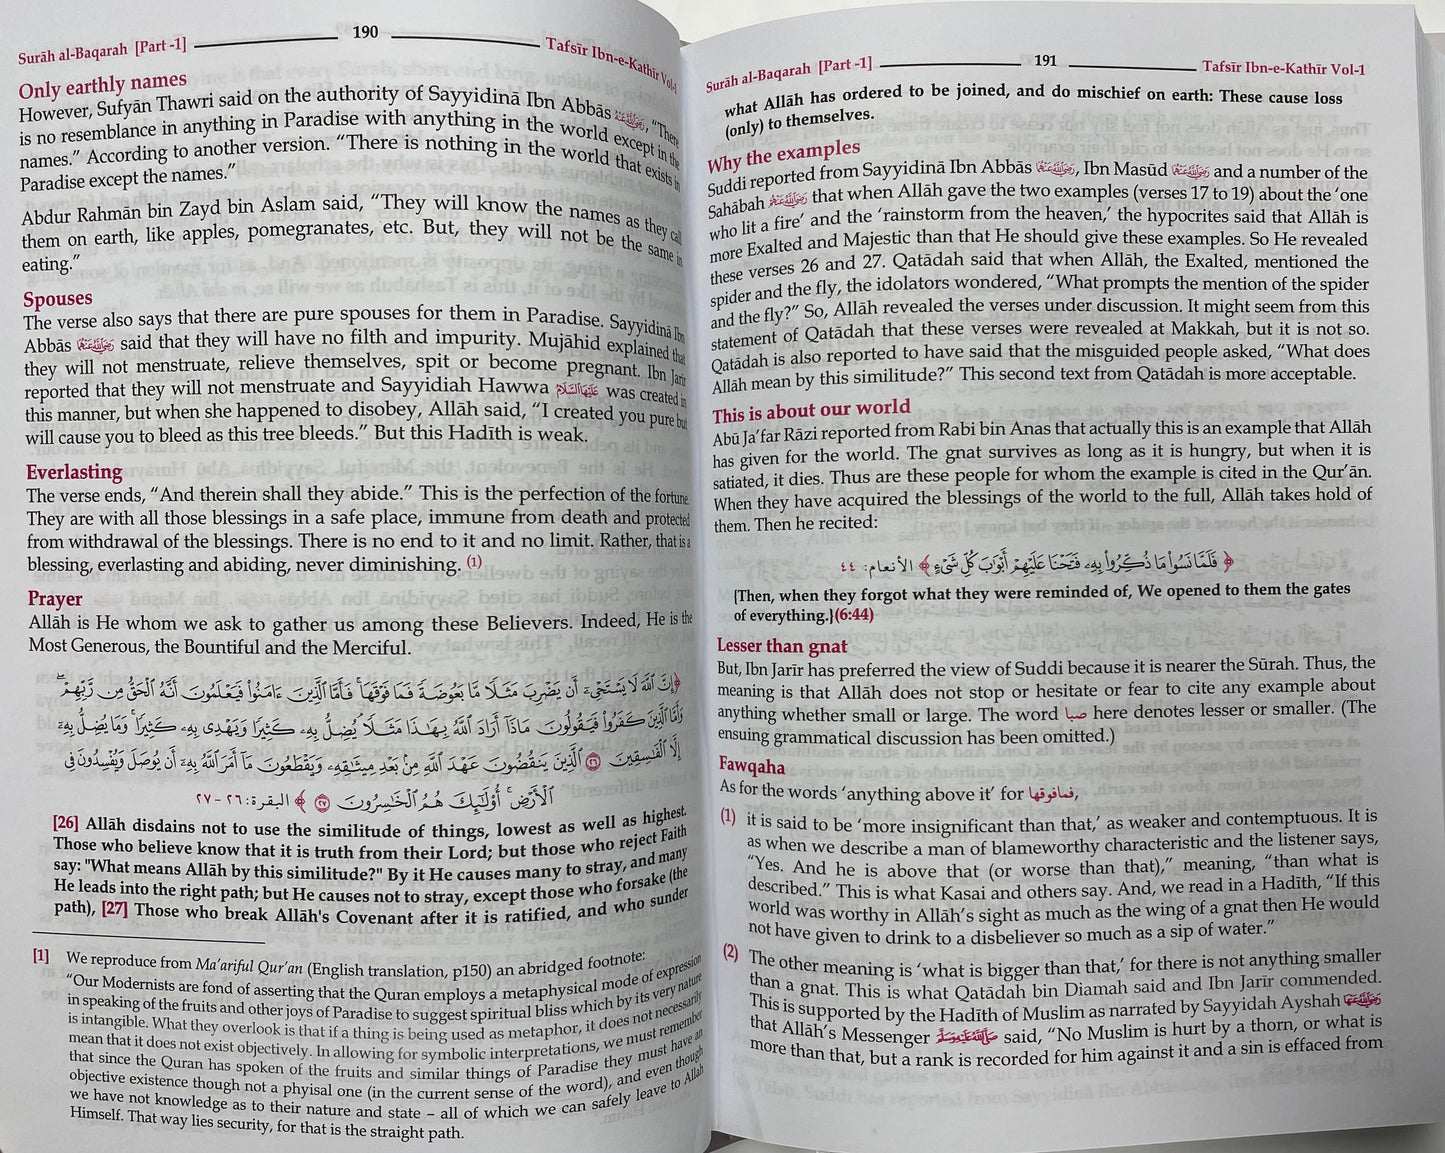 Surāh al-Baqarah [Part -1] 190 Tafsīr Ibn-e-Kathīr Vol-1
Only earthly names
However, Sufyān Thawri said on the authority of Sayyidinā Ibn Abbās رضي الله عنه, “There
is no resemblance in anything in Paradise with anything in the world except in the
names.” According to another version. “There is nothing in the world that exists in
Paradise except the names.”
Abdur Rahmān bin Zayd bin Aslam said, “They will know the names as they call
them on earth, like apples, pomegranates, etc. But, they will not be the same in
eating.”
Spouses
The verse also says that there are pure spouses for them in Paradise. Sayyidinā Ibn
Abbās رضي الله عنه said that they will have no filth and impurity. Mujāhid explained that
they will not menstruate, relieve themselves, spit or become pregnant. Ibn Jarīr
reported that they will not menstruate and Sayyidiah Hawwa عليها السلام was created in
this manner, but when she happened to disobey, Allāh said, “I created you pure but
will cause you to bleed as this tree bleeds.” But this Hadīth is weak.
Everlasting
The verse ends, “And therein shall they abide.” This is the perfection of the fortune.
They are with all those blessings in a safe place, immune from death and protected
from withdrawal of the blessings. There is no end to it and no limit. Rather, that is a
blessing, everlasting and abiding, never diminishing. (1)
Prayer
Allāh is He whom we ask to gather us among these Believers. Indeed, He is the
Most Generous, the Bountiful and the Merciful.
﴿إِنَّ ٱللَّهَ لَا يَسْتَحْىِۦٓ أَن يَضْرِبَ مَثَلًا مَّا بَعُوضَةً فَمَا فَوْقَهَا ۚ فَأَمَّا ٱلَّذِينَ ءَامَنُوا۟ فَيَعْلَمُونَ أَنَّهُ ٱلْحَقُّ مِن رَّبِّهِمْ ۖ
وَأَمَّا ٱلَّذِينَ كَفَرُوا۟ فَيَقُولُونَ مَاذَآ أَرَادَ ٱللَّهُ بِهَـٰذَا مَثَلًا ۘ يُضِلُّ بِهِۦ كَثِيرًا وَيَهْدِى بِهِۦ كَثِيرًا ۚ وَمَا يُضِلُّ بِهِۦٓ
إِلَّا ٱلْفَـٰسِقِينَ ۝٢٦ ٱلَّذِينَ يَنقُضُونَ عَهْدَ ٱللَّهِ مِنۢ بَعْدِ مِيثَـٰقِهِۦ وَيَقْطَعُونَ مَآ أَمَرَ ٱللَّهُ بِهِۦٓ أَن يُوصَلَ وَيُفْسِدُونَ فِى
ٱلْأَرْضِ ۚ أُو۟لَـٰٓئِكَ هُمُ ٱلْخَـٰسِرُونَ ۝٢٧﴾ البقرة: ٢٦-٢٧
[26] Allāh disdains not to use the similitude of things, lowest as well as highest.
Those who believe know that it is truth from their Lord; but those who reject Faith
say: "What means Allāh by this similitude?" By it He causes many to stray, and many
He leads into the right path; but He causes not to stray, except those who forsake (the
path), [27] Those who break Allāh's Covenant after it is ratified, and who sunder
[1] We reproduce from Ma’ariful Qur’an (English translation, p150) an abridged footnote:
“Our Modernists are fond of asserting that the Quran employs a metaphysical mode of expression
in speaking of the fruits and other joys of Paradise to suggest spiritual bliss which by its very nature
is intangible. What they overlook is that if a thing is being used as metaphor, it does not necessarily
mean that it does not exist objectively. In allowing for symbolic interpretations, we must remember
that since the Quran has spoken of the fruits and similar things of Paradise they must have an
objective existence though not a phyisal one (in the current sense of the word), and even though
we have not knowledge as to their nature and state – all of which we can safely leave to Allah
Himself. That way lies security, for that is the straight path.
Surāh al-Baqarah [Part -1] 191 Tafsīr Ibn-e-Kathīr Vol-1
what Allāh has ordered to be joined, and do mischief on earth: These cause loss
(only) to themselves.
Why the examples
Suddi reported from Sayyidinā Ibn Abbās رضي الله عنه, Ibn Masūd رضي الله عنه and a number of the
Sahābah رضي الله عنهم that when Allāh gave the two examples (verses 17 to 19) about the ‘one
who lit a fire’ and the ‘rainstorm from the heaven,’ the hypocrites said that Allāh is
more Exalted and Majestic than that He should give these examples. So He revealed
these verses 26 and 27. Qatādah said that when Allāh, the Exalted, mentioned the
spider and the fly, the idolators wondered, “What prompts the mention of the spider
and the fly?” So, Allāh revealed the verses under discussion. It might seem from this
statement of Qatādah that these verses were revealed at Makkah, but it is not so.
Qatādah is also reported to have said that the misguided people asked, “What does
Allāh mean by this similitude?” This second text from Qatādah is more acceptable.
This is about our world
Abū Ja’far Rāzi reported from Rabi bin Anas that actually this is an example that Allāh
has given for the world. The gnat survives as long as it is hungry, but when it is
satiated, it dies. Thus are these people for whom the example is cited in the Qur’ān.
When they have acquired the blessings of the world to the full, Allāh takes hold of
them. Then he recited:
﴿فَلَمَّا نَسُوا۟ مَا ذُكِّرُوا۟ بِهِۦ فَتَحْنَا عَلَيْهِمْ أَبْوَٰبَ كُلِّ شَىْءٍ﴾ الأنعام: ٤٤
{Then, when they forgot what they were reminded of, We opened to them the gates
of everything.}(6:44)
Lesser than gnat
But, Ibn Jarīr has preferred the view of Suddi because it is nearer the Sūrah. Thus, the
meaning is that Allāh does not stop or hesitate or fear to cite any example about
anything whether small or large. The word صبا here denotes lesser or smaller. (The
ensuing grammatical discussion has been omitted.)
Fawqaha
As for the words ‘anything above it’ for فمافوقها,
(1) it is said to be ‘more insignificant than that,’ as weaker and contemptuous. It is
as when we describe a man of blameworthy characteristic and the listener says,
“Yes. And he is above that (or worse than that),” meaning, “than what is
described.” This is what Kasai and others say. And, we read in a Hadīth, “If this
world was worthy in Allāh’s sight as much as the wing of a gnat then He would
not have given to drink to a disbeliever so much as a sip of water.”
(2) The other meaning is ‘what is bigger than that,’ for there is not anything smaller
than a gnat. This is what Qatādah bin Diamah said and Ibn Jarīr commended.
This is supported by the Hadīth of Muslim as narrated by Sayyidah Ayshah رضي الله عنها
that Allāh’s Messenger صلى الله عليه وسلم said, “No Muslim is hurt by a thorn, or what is
more than that, but a rank is recorded for him against it and a sin is effaced from